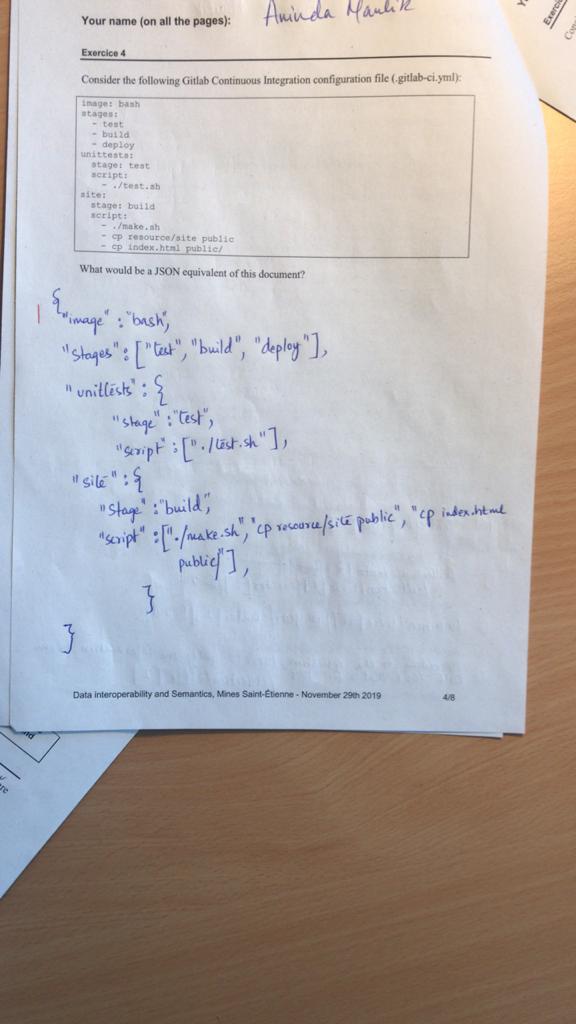 Your name (on all the pages): Aninda Maulik
Exercice 4
Consider the following Gitlab Continuous Integration configuration file (.gitlab-ci.yml):
image: bash
stages:
  - test
  - build
  - deploy
unittests:
  stage: test
  script:
    - ./test.sh
site:
  stage: build
  script:
    - ./make.sh
    - cp resource/site public
    - cp index.html public/
What would be a JSON equivalent of this document?
{
"image" : "bash",
"stages" : ["test", "build", "deploy"],
"unittests" : {
"stage" : "test",
"script" : ["./test.sh"],
"site" : {
"stage" : "build",
"script" : ["./make.sh", "cp resource/site public", "cp index.html
public/"],
}
}
Data interoperability and Semantics, Mines Saint-Étienne - November 29th 2019 4/8